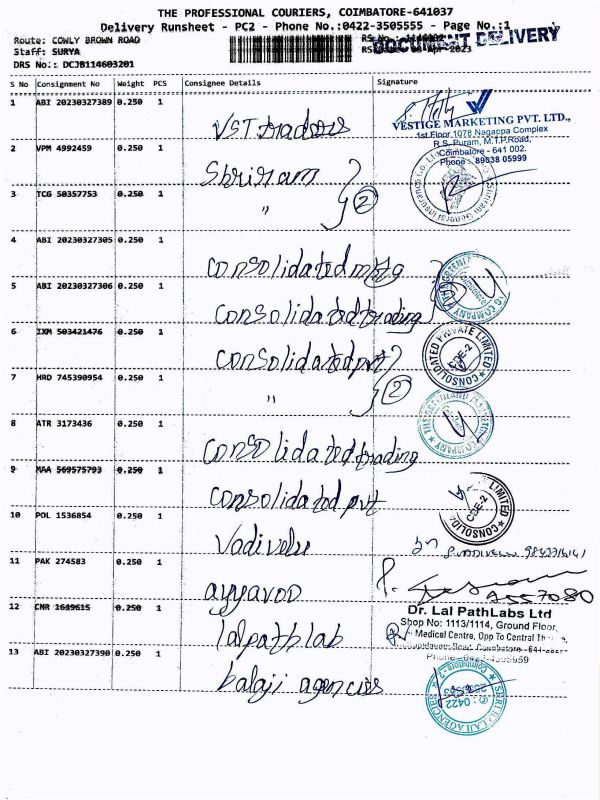 THE PROFESSIONAL COURIERS, COIMBATORE-641037
Delivery Runsheet - PC2 - Phone No.:0422-3505555 - Page No.:1
Route: COWLY BROWN ROAD
DOCUMENT DELIVERY
Staff: SURYA
DRS No.: DCJB114603201
S No Consignment No Weight PCS Consignee Details Signature
1 ABI 20230327389 0.250 1 VST traders
VESTIGE MARKETING PVT. LTD.,
1st Floor 1078 Nagappa Complex
R.S. Puram, M.T.P.Road,
Coimbatore - 641 002.
Phone : 89038 05999
2 VPM 4992459 0.250 1 Shriram
3 TCG 50357753 0.250 1 " 2
4 ABI 20230327305 0.250 1 consolidated mktg
5 ABI 20230327306 0.250 1 consolidated trading
6 IXM 503421476 0.250 1 consolidated pvt
CONSOLIDATED PRIVATE LIMITED
CBE-2
7 HRD 745390954 0.250 1 " 2
8 ATR 3173436 0.250 1 consolidated trading
9 MAA 569575793 0.250 1 consolidated pvt
CBE-2
10 POL 1536854 0.250 1 Vadivelu
11 PAK 274583 0.250 1 ayyavoo
12 CNR 1649615 0.250 1 lalpathlab
Dr. Lal PathLabs Ltd
Shop No: 1113/1114, Ground Floor,
Medical Centre, Opp To Central
13 ABI 20230327390 0.250 1 balaji agencies